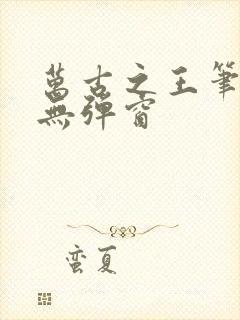 萬古之王筆
無彈窗
蛮夏